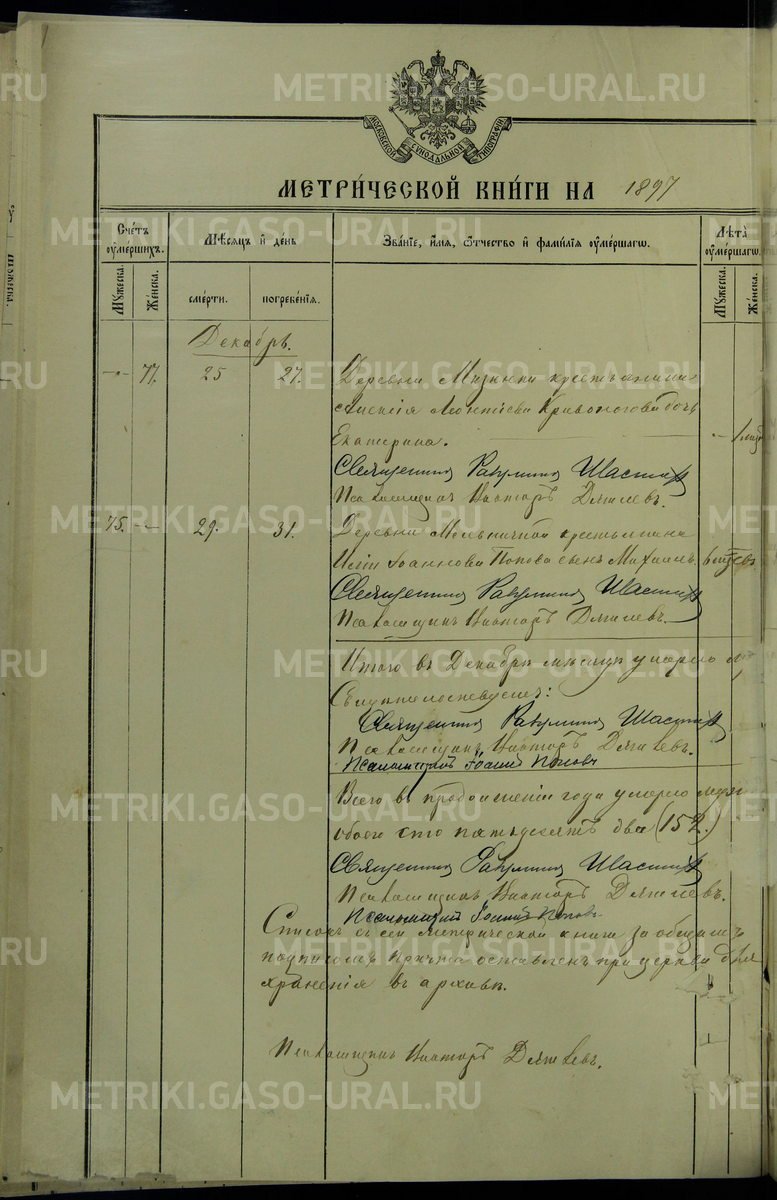 METRIKI.GASO-URAL.RU
МОСКОВСКОЙ СѴНОДАЛЬНОЙ ТИПОГРАФІИ
МЕТРИ́ЧЕСКОЙ КНИ́ГИ НА 1897
Счётъ ᲂу҆ме́ршихъ.
Мꙋ́жеска.
Же́нска.
Мѣ́сяцъ и҆ де́нь
сме́рти.
погребе́нїѧ.
Зва́нїе, и҆́мѧ, ѻ҆́тчество и҆ фами́лїѧ ᲂу҆ме́ршагѡ.
Лѣ́та ᲂу҆ме́ршагѡ.
Мꙋ́жеска.
Же́нска.
Декабрь.
77. 25 27. Деревни Мизиной крестьянина
Алексія Леонтіева Кривоногова дочь
Екатерина.
Священникъ Шастинъ
Псаломщикъ Викторъ
75. 29. 31. Деревни Мельничной крестьянина
Иліи Іоаннова Попова сынъ Михаилъ. 6
Священникъ Шастинъ
Псаломщикъ Викторъ
Итого въ Декабрѣ мѣсяцѣ умерло
Священникъ Шастинъ
Псаломщикъ Викторъ
Псаломщикъ Іоаннъ Поповъ
Всего въ продолженіи года умерло
обоего сто пятьдесятъ два (152.)
Священникъ Шастинъ
Псаломщикъ Викторъ
Псаломщикъ Іоаннъ Поповъ
Списокъ съ сей метрической книги за общимъ
подписомъ причта оставленъ при церкви для
храненія въ архивѣ.
Псаломщикъ Викторъ